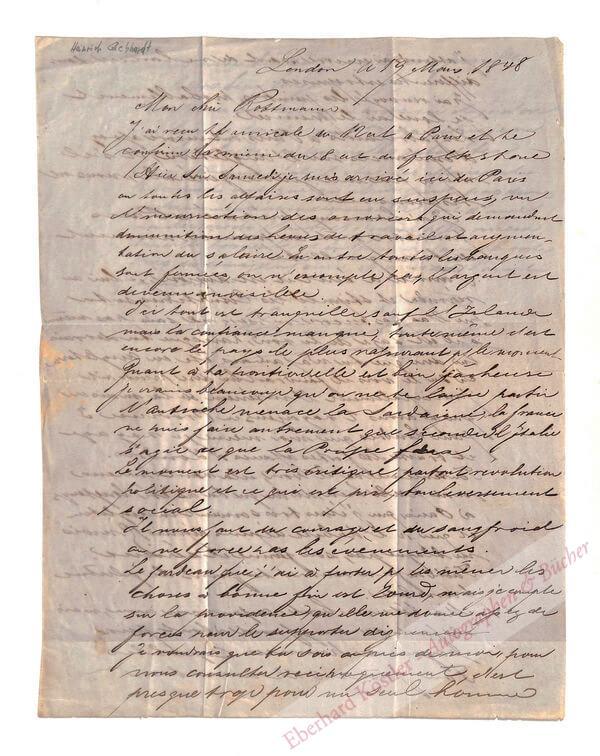 Heinrich Gebhardt.
London d 19 Mars 1848
Mon cher Rossmann
J'ai reçu amicale du à Paris et te
confirme la mienne du 8 ct de folkstone
Hier Soir Samedi je suis arrivé ici de Paris
ou toutes les affaires sont en suspens, vu
l'insurrection des ouvriers qui demandent
diminution des heures de travail et augmen-
tation du salaire. En outre toutes les banques
sont fermées, on n'escompte pas, l'argent est
devenu invisible
Ici tout est tranquille sauf l'Irlande
mais la confiance manque, tout de même c'est
encore le pays le plus rassurant p le moment
Quant à ta position elle est bien facheuse
je crains beaucoup qu'on ne te laisse partir
L'autriche menace la Sardaigne, la france
ne puis faire autrement que seconder l'Italie
s'agit ce que la Prusse fera
Le moment est très critique, partout revolution
politique et ce qui est pis, bouleversement
social
Il nous faut du courage et du sangfroid
on ne force pas les évènements.
Le fardeau que j'ai à porter p les mener les
choses à bonne fin est lourd, mais je compte
sur la providence, qu'elle me donne assez de
forces pour le supporter dignement
Je voudrais que tu sois auprès de moi, pour
nous consulter reciproquement, c'est
presque trop pour un seul homme
Eberhard Köstler - Autographen & Bücher